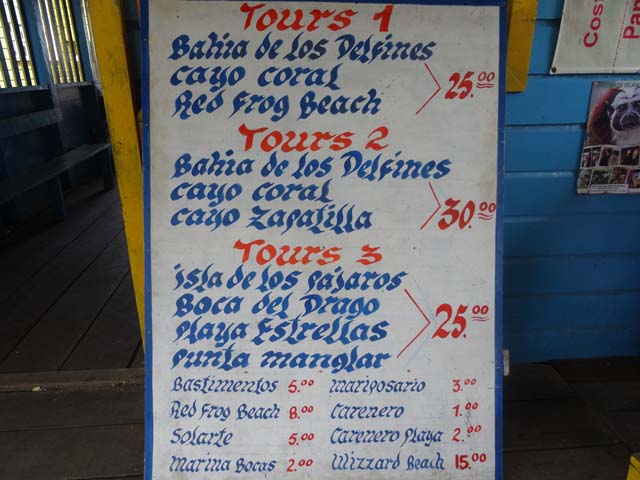 Tours 1
Bahia de los Delfines
cayo coral
Red Frog Beach
25.00
Tours 2
Bahia de los Delfines
cayo coral
cayo Zapatilla
30.00
Tours 3
isla de los pájaros
Boca del Drago
Playa Estrellas
punta manglar
25.00
Bastimentos 5.00 mariposario 3.00
Red Frog Beach 8.00 Carenero 1.00
Solarte 5.00 Carenero Playa 2.00
Marina Bocas 2.00 Wizzard Beach 15.00
Cos
Pan